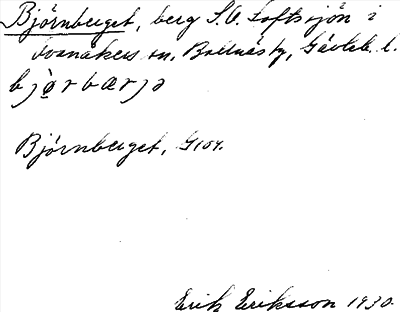 Björnberget, berg S.O. Loftssjön i
Svanåkers sn, Bollnäs tg, Gävleb. l.
bjørbærjə
Björnberget, G 104.
Erik Eriksson 1930.